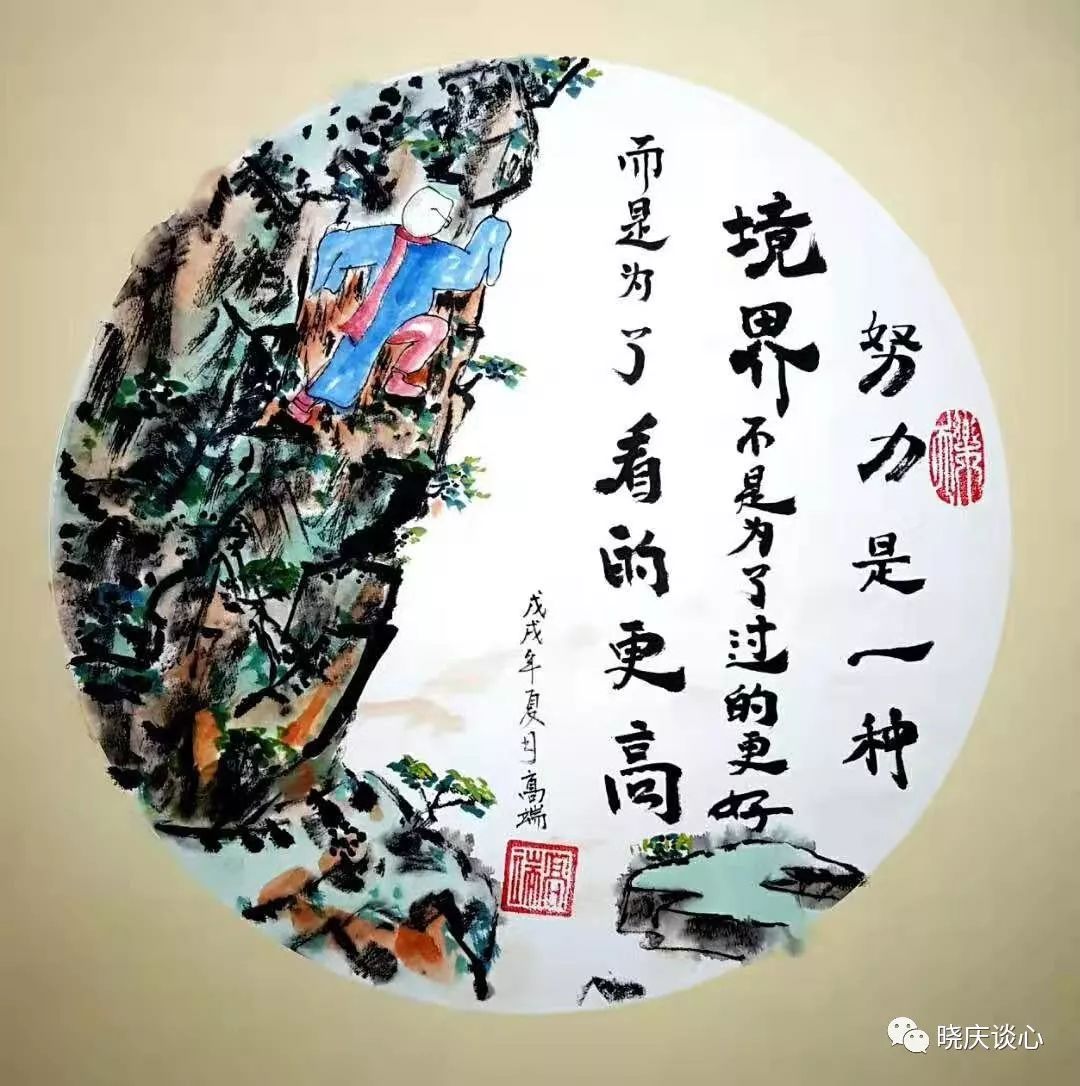 努力是一种
境界不是为了过的更好
而是为了看的更高
戊戌年夏月高端
晓庆谈心